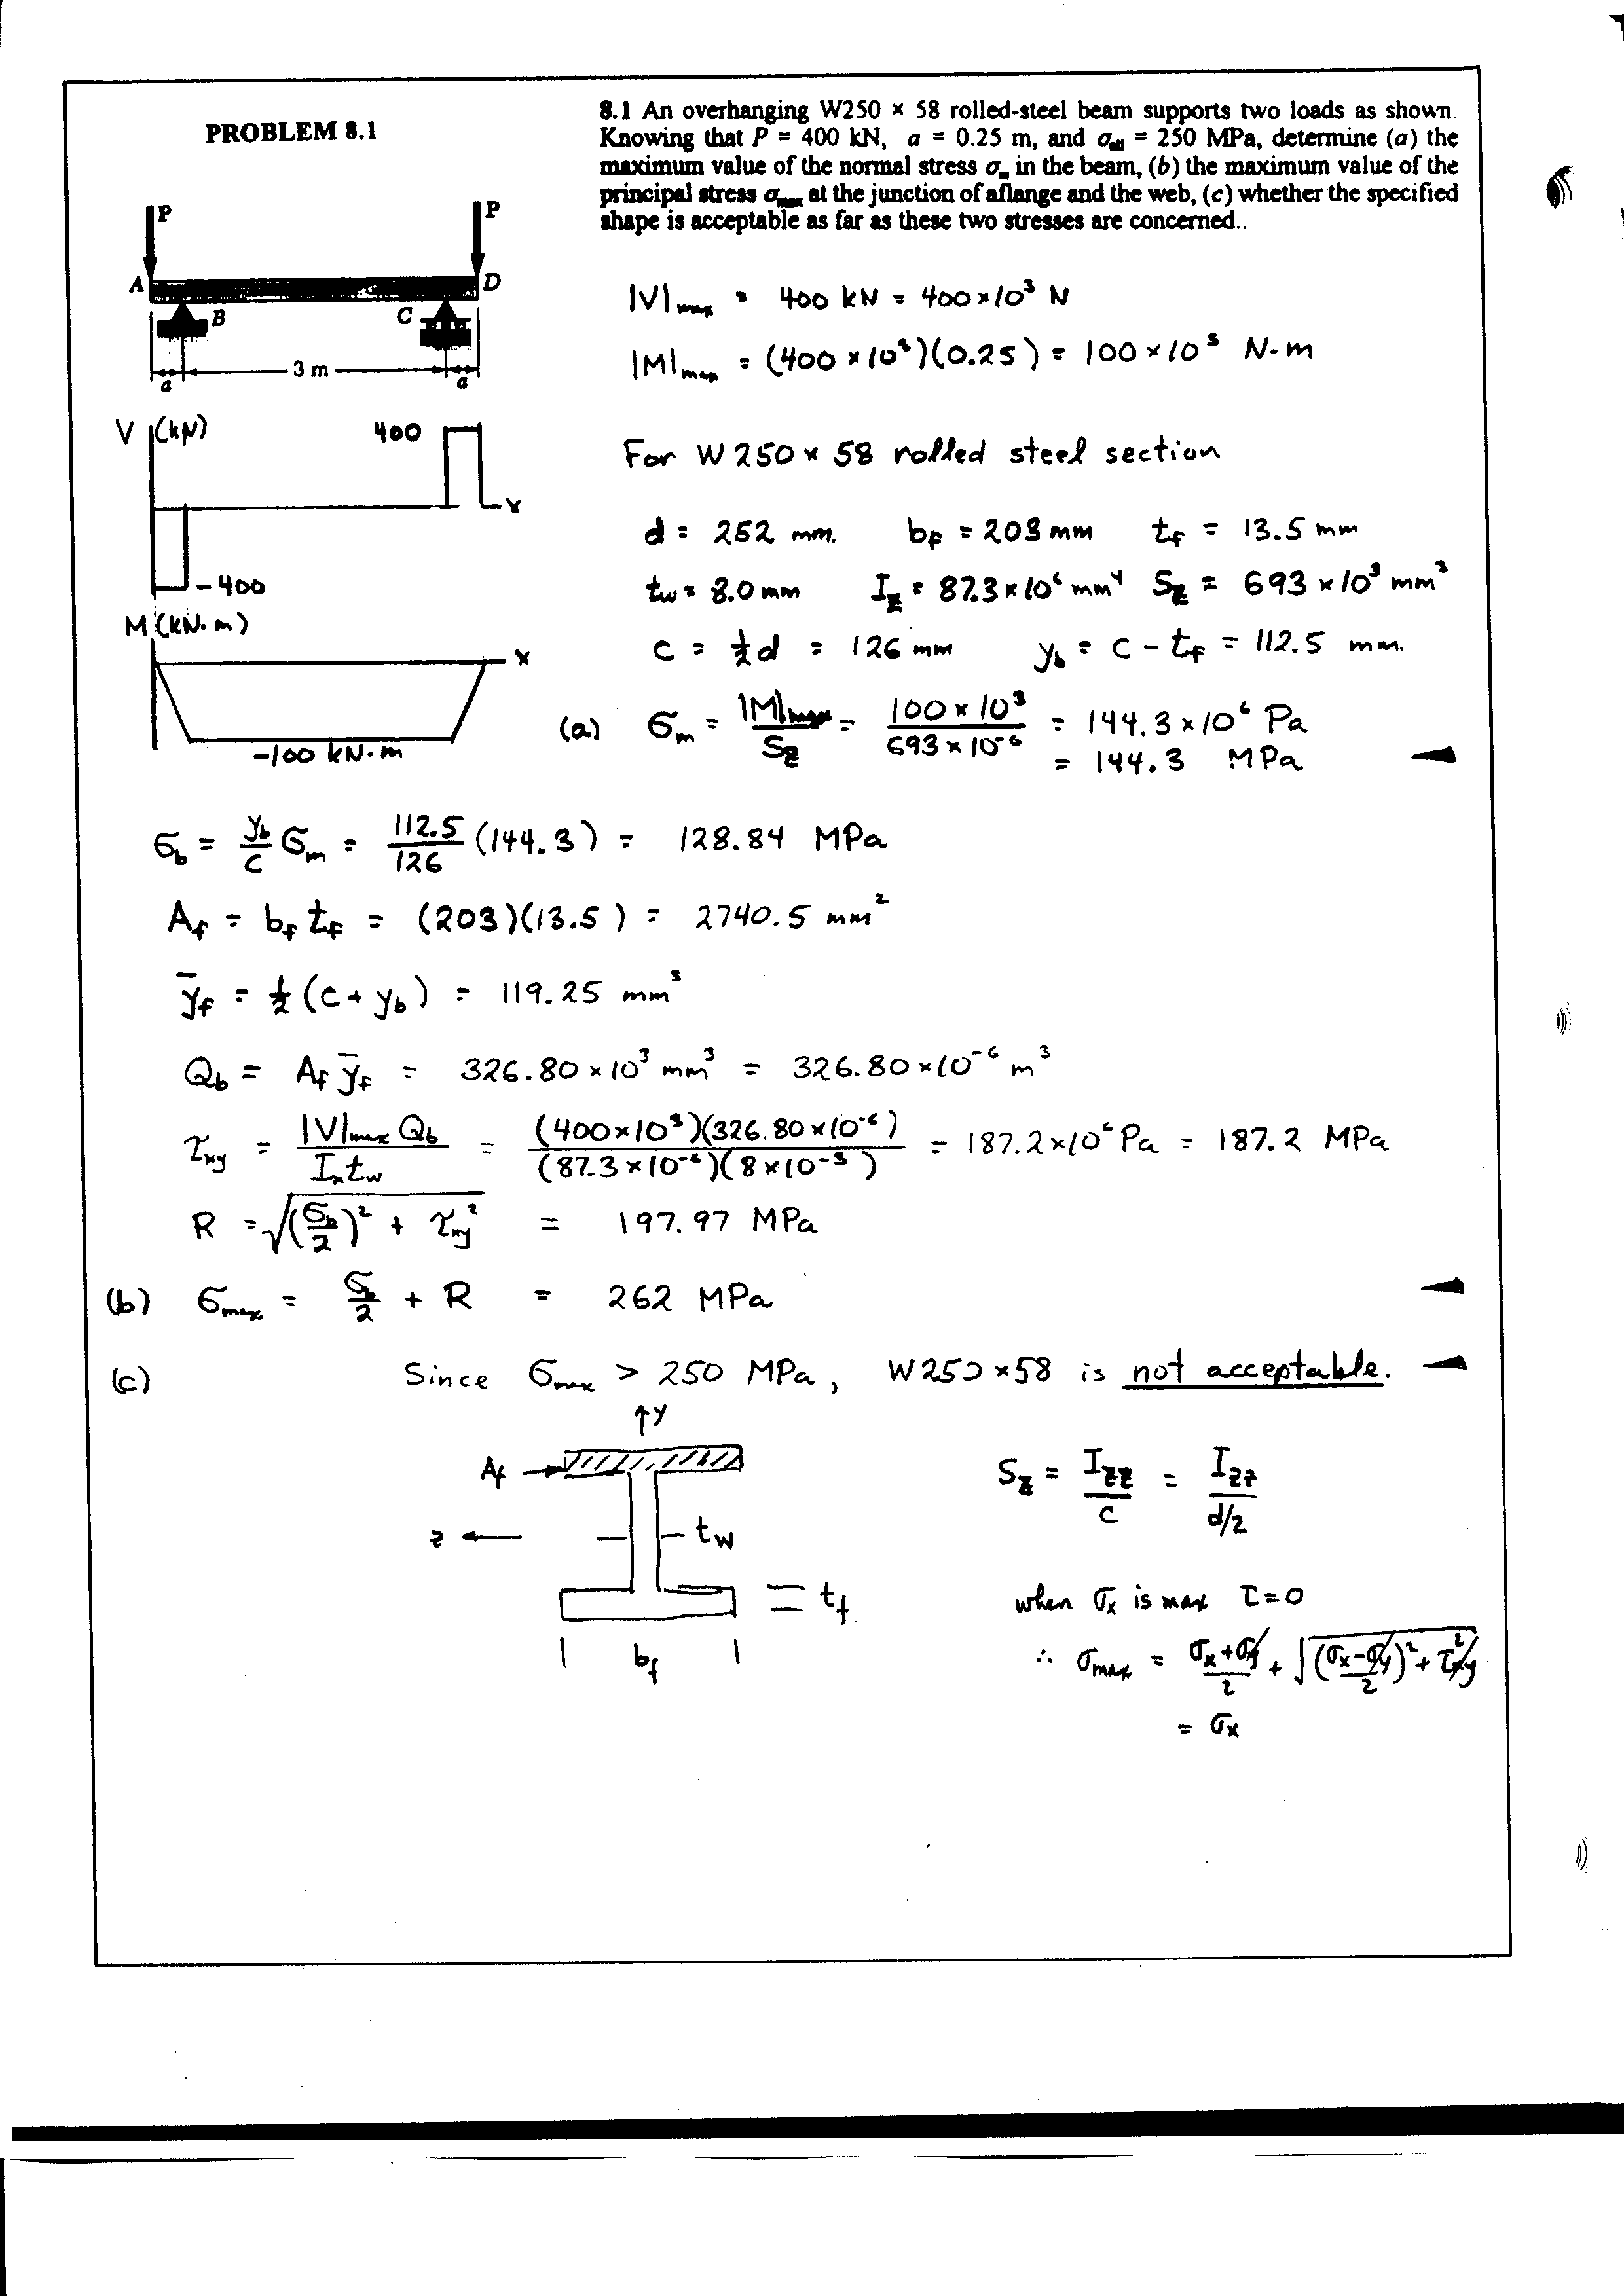 PROBLEM 8.1
8.1 An overhanging W250 × 58 rolled-steel beam supports two loads as shown.
Knowing that P = 400 kN, a = 0.25 m, and σall = 250 MPa, determine (a) the
maximum value of the normal stress σm in the beam, (b) the maximum value of the
principal stress σmax at the junction of aflange and the web, (c) whether the specified
shape is acceptable as far as these two stresses are concerned..
P P
A D
B C
3 m
a a
|V|max = 400 kN = 400×10³ N
|M|max = (400×10³)(0.25) = 100×10³ N·m
V (kN) 400
x
-400
M (kN·m)
x
-100 kN·m
For W 250× 58 rolled steel section
d = 252 mm. bf = 203 mm tf = 13.5 mm
tw = 8.0 mm Iz = 87.3×10⁶ mm⁴ Sz = 693×10³ mm³
c = ½d = 126 mm yb = c - tf = 112.5 mm.
(a) σm = |M|max/Sz = 100×10³/693×10⁻⁶ = 144.3×10⁶ Pa
= 144.3 MPa
σb = yb/c σm = 112.5/126 (144.3) = 128.84 MPa
Af = bf tf = (203)(13.5) = 2740.5 mm²
ȳf = ½(c + yb) = 119.25 mm³
Qb = Af ȳf = 326.80×10³ mm³ = 326.80×10⁻⁶ m³
τxy = |V|max Qb/Ix tw = (400×10³)(326.80×10⁻⁶)/(87.3×10⁻⁶)(8×10⁻³) = 187.2×10⁶ Pa = 187.2 MPa
R = √(σb/2)² + τxy² = 197.97 MPa
(b) σmax = σb/2 + R = 262 MPa
(c) Since σmax > 250 MPa, W250×58 is not acceptable.
↑y
Af
z
tw
tf
bf
Sz = Izz/c = Izz/d/2
when σx is max τ=0
∴ σmax = σx+σy/2 + √(σx-σy/2)² + τxy²
= σx